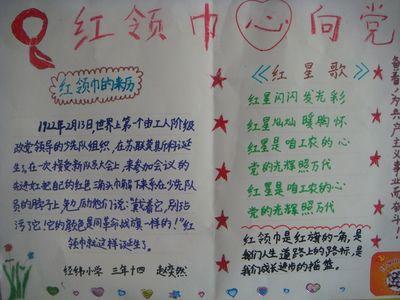 红领巾心向党
红领巾的来历
1922年2月13日,世界上第一个由工人阶级
政党领导的少先队组织,在苏联莫斯科诞
生。在一次接受新队员大会上,来参加会议的
先进女工把自己的红色三角头巾解下来系在少先队
员的脖子上,勉励他们说:"戴着它,别玷
污了它!它的颜色是同革命战旗一样的!"红
领巾就这样诞生了。
经纬小学 三年十四 赵奕然
《红星歌》
红星闪闪发光彩
红星灿灿暖胸怀
红星是咱工农的心
党的光辉照万代
红星是咱工农的心
党的光辉照万代
红领巾是红旗的一角,是
我们人生道路上的路标,是
我们成长进步的摇篮。
备着,为共产主义事业而奋斗!